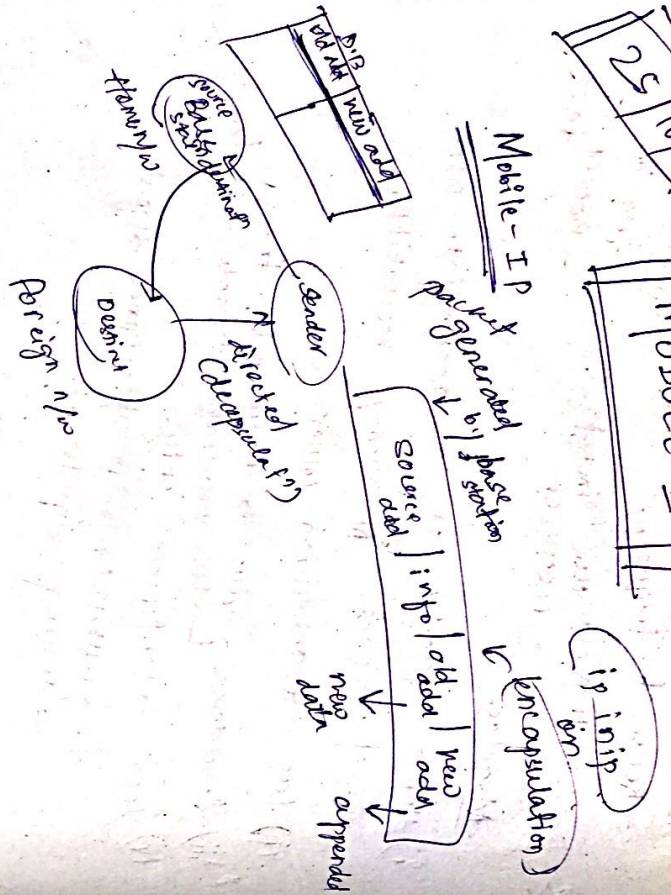 25
Mobile-IP
ip inip
on
(encapsulation)
packet
generated
by base
station
source add / info / old add / new add
new
data
appended
D.B
old add | new add
Sender
source
Base
station
destination
Home n/w
directed
Destinat
foreign n/w